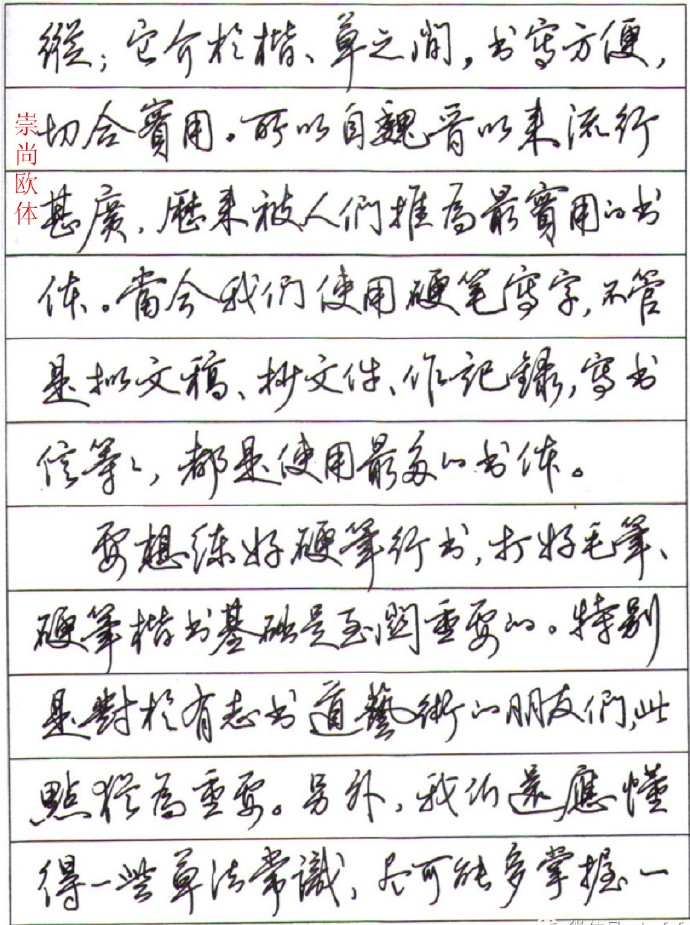 縱；它介於楷、草之間，书寫方便，
切合實用。所以自魏晉以来流行
甚廣，歷来被人們推為最實用的书
体。當今我們使用硬笔寫字，不管
是拟文稿、抄文件、作記錄，寫书
信等々，都是使用最多的书体。
要想练好硬筆行书，打好毛筆、
硬筆楷书基础是至関重要的。特别
是對於有志书道藝術的朋友們，此
點猶為重要。另外，我们還應懂
得一些草法常識，尽可能多掌握一
崇尚欧体